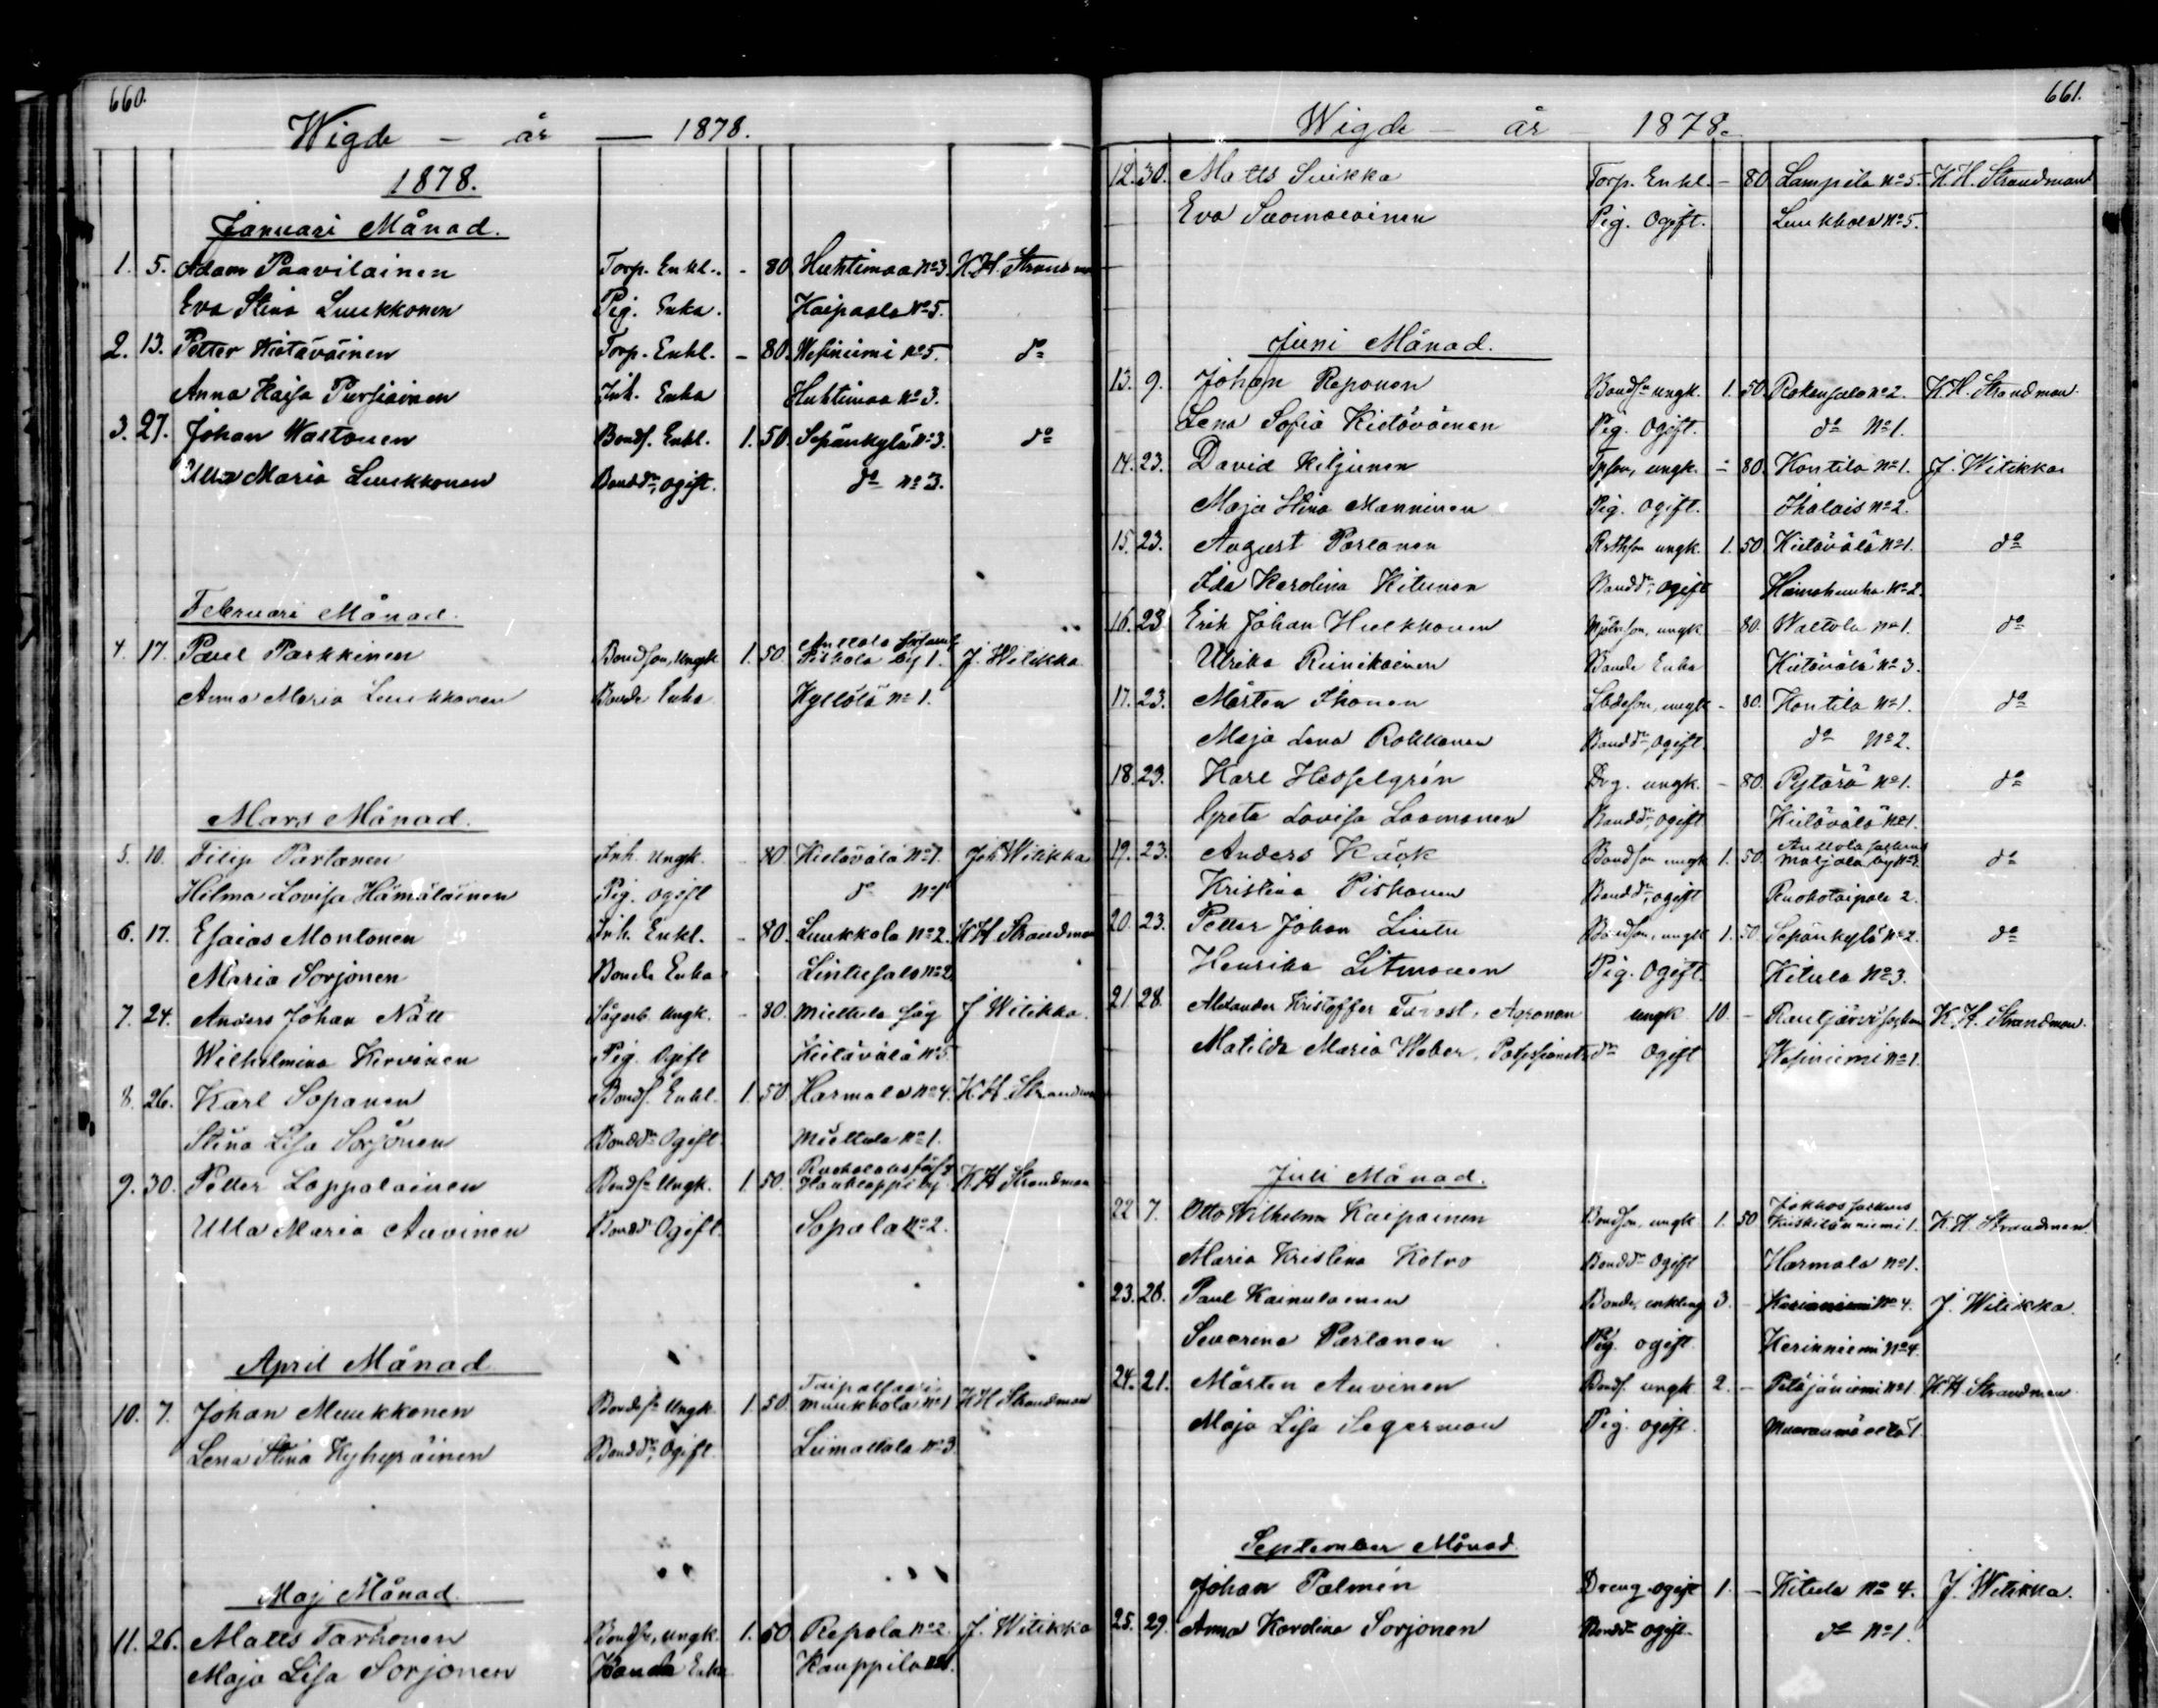 660.
Wigde - år - 1878.
1878.
Januari Månad.
1. 5. Adam Paavilainen Torp. Enkl. - 80. Huhtimaa No 3. K. H. Strandman
Eva Stina Luukkonen Pig. Enka. Kaipaala No 5.
2. 13. Petter Kietäväinen Torp. Enkl. - 80. Wesiniemi No 5. do
Anna Kaisa Pursiainen Inh. Enka Huhtimaa No 3.
3. 27. Johan Waltonen Bonds. Enkl. 1. 50. Sepänkylä No 3. do
Ulla Maria Luukkonen Bonddr, ogift. do No 3.
Februari Månad.
4. 17. Paul Parkkinen Bondson, Ungk. 1. 50. Anttola by 1. J. Witikka
Anna Maria Luukkonen Bonde Enka Kyllölä No 1.
Mars Månad.
5. 10. Filip Partanen Inh. Ungk. - 80 Kietävälä No 1. Joh Witikka
Hilma Lovisa Hämäläinen Pig. ogift do No 1
6. 17. Esaias Montonen Inh. Enkl. - 80. Luukkola No 2. K H Strandman
Maria Sorjonen Bonde Enka Lintusalo No 2
7. 24. Anders Johan Nätt Sågarb. Ungk. - 80. Miettula såg J Witikka.
Wilhelmina Kirvinen Pig. Ogift Kietävälä No 5
8. 26. Karl Sopanen Bonds. Enkl. 1. 50. Harmala No 4. K. H. Strandman
Stina Lisa Sorjonen Bonddr Ogift. Miettula No 1.
9. 30. Petter Lappalainen Bondsn Ungk. 1. 50. by K H Strandman
Ulla Maria Auvinen Bondd Ogift. Sopala No 2.
April Månad
10. 7. Johan Muukkonen Bondesn Ungk. 1. 50. Taipalsaari Muukkola No 1 K H Strandman
Lena Stina Kyhyräinen Bonddr, Ogift. Liimattala No 3
Maj Månad
11. 26. Matts Tarhonen Bondsn, ungk. 1. 50 Repola No 2. J. Witikka
Maja Lisa Sorjonen Bonde Enka Kauppila No 1.
661.
Wigde - år - 1878.
12. 30. Matts Suikka Torp. Enkl. - 80 Lampila No 5. K. H. Strandman
Eva Suomalainen Pig. Ogift. Luukkola No 5.
Juni Månad.
13. 9. Johan Reponen Bondsn ungk. 1. 50. Rokansalo No 2. K H. Strandman.
Lena Sofia Kietäväinen Pig. Ogift. do No 1.
14. 23. David Kiljunen ungk. - 80. Kontila No 1. J. Witikka
Maja Stina Manninen Pig. Ogift. Ihalais No 2.
15. 23. August Partanen ungk. 1. 50. Kietävälä No 1. do
Ida Karolina Kitunen Bonddr, Ogift No 2
16. 23 Erik Johan Hulkkonen ungk 80. Waltola No 1. do
Ulrika Reinikainen Bonde Enka Kietävälä No 3.
17. 23. Mårten Ihonen ungk - 80. Kontila No 1. do
Maja Lena Rokkanen Bonddr, Ogift do No 2.
18. 23. Karl Hesselgrén Drg. ungk. - 80. Pylärä No 1. do
Greta Lovisa Laamanen Bonddr, Ogift Kietävälä No 1.
19. 23. Anders Käck Bondson ungk 1. 50. Anttola sockens by No 3. do
Kristina Pitkänen Bonddr, ogift Ruokotaipale 2.
20. 23. Petter Johan Lintu Bondson, ungk 1. 50. Sepänkylä No 2. do
Henrika Litmanen Pig. Ogift. Kitula No 3.
21 28. Alexander Kristoffer Tavast, Agronom ungk 10. - Rautjärvi socken K. H. Strandman.
Matilda Maria Weber, dr Ogift Wesiniemi No 1.
Juli Månad.
22 7. Otto Wilhelm Kaipainen Bondson, ungk 1. 50 Jokkas sockens 1. K. H. Strandman.
Maria Kristina Kotro Bonddr Ogift Harmala No 1.
23. 28. Paul Kainulainen Bonde, enkling 3. - No 4. J. Witikka.
Severina Partanen Pig. ogift. Kerinniemi No 4
24. 21. Mårten Auvinen Bonds. ungk 2. - Petäjäniemi No 1. K. H. Strandman
Maja Lisa Segerman Pig. ogift. 1
September Månad
Johan Palmén Dreng ogift 1. - Kitula No 4. J. Witikka.
25. 29. Anna Karolina Sorjonen Bonddr ogift do No 1.